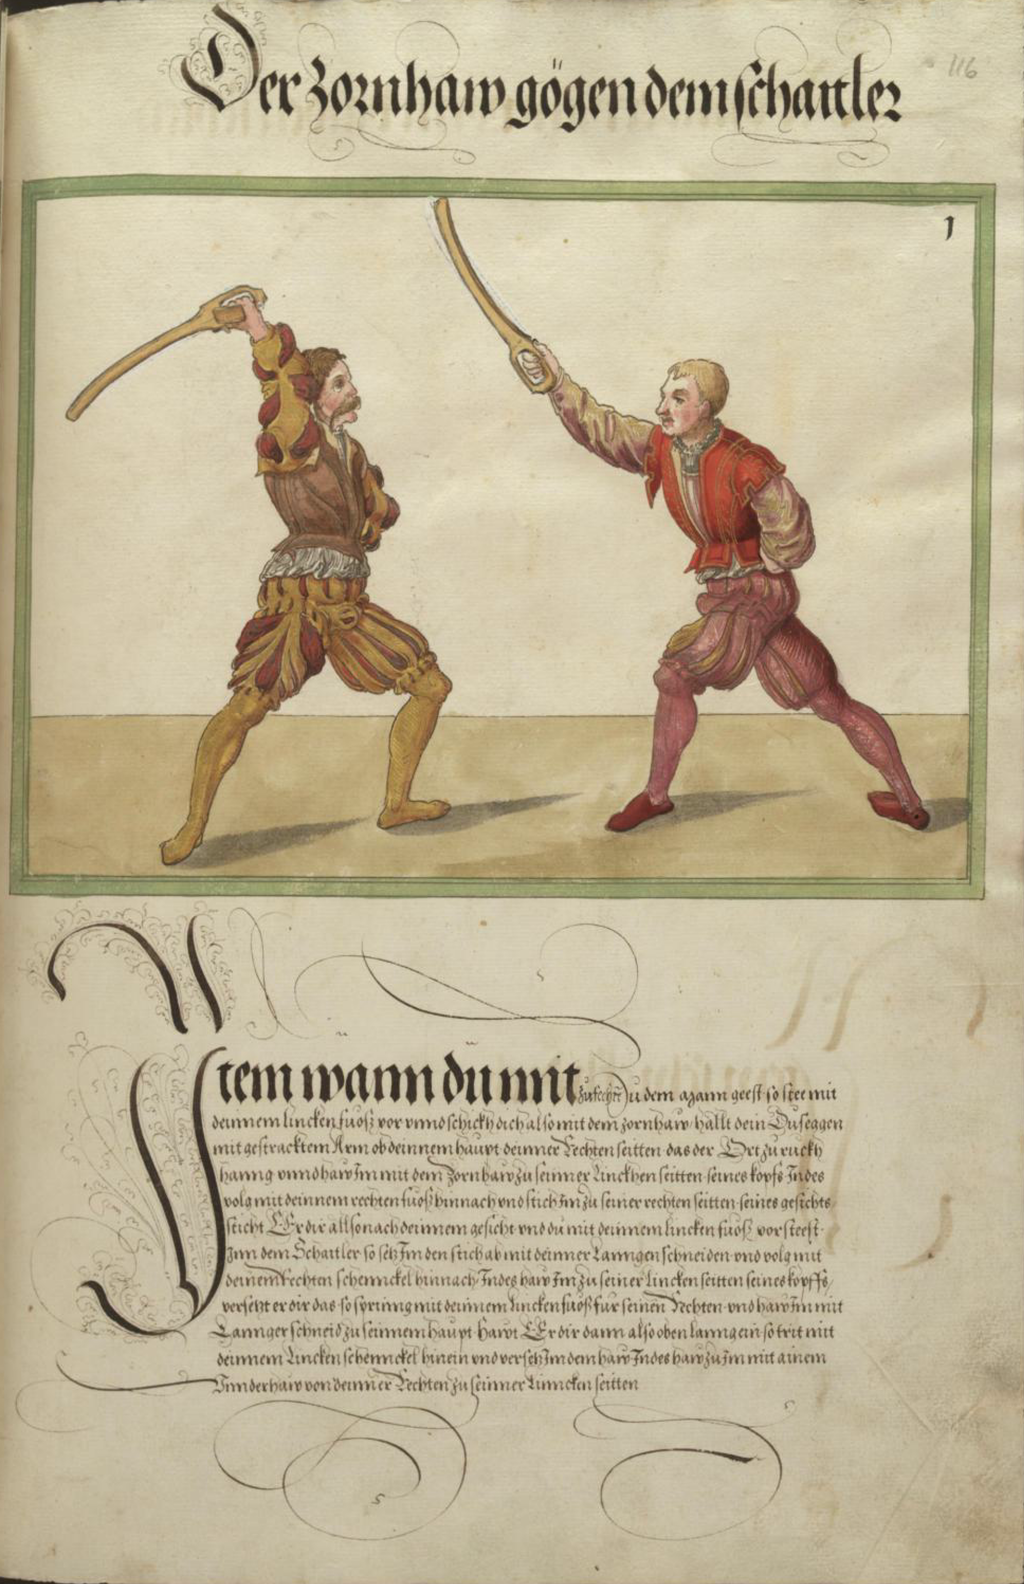 Der Zornhaw gögen dem schaitler
116
1
Item wann dü mit zufechtn du dem Mann geest so stee mit
deinnem lincken fuoß vor unnd schickh dich also mit dem zornhaw hallt dein Duseggen
mit gestracktem Arm ob deinnem haupt deinner Rechten seitten das der Ort zu ruckh
hanng unnd haw Im mit dem zornhaw zu seinner Linckhen seitten seines kopfs Indes
volg mit deinnem rechten fuoß hinnach und stich Im zu seiner rechten seitten seines gesichts
sticht Er dir allso nach deinnem gesicht und du mit deinnem lincken fuoß vorsteest
Inn dem Schaittler so setz Im den stich ab mit deinner Lanngen schneiden und volg mit
deinem Rechten schennckel hinnach Indes haw Im zu seiner Lincken seitten seines kopffs
versetzt er dir das so spring mit deinnem Lincken fuoß für seinen Rechten und haw Im mit
Lannger schneid zu seinnem haupt Hawt Er dir dann also oben lanng ein so trit mit
deinnem Lincken schennckel hinein und versetz Im dem haw Indes haw zu Im mit ainem
Unnderhaw von deinner Rechten zu seinner Linncken seitten